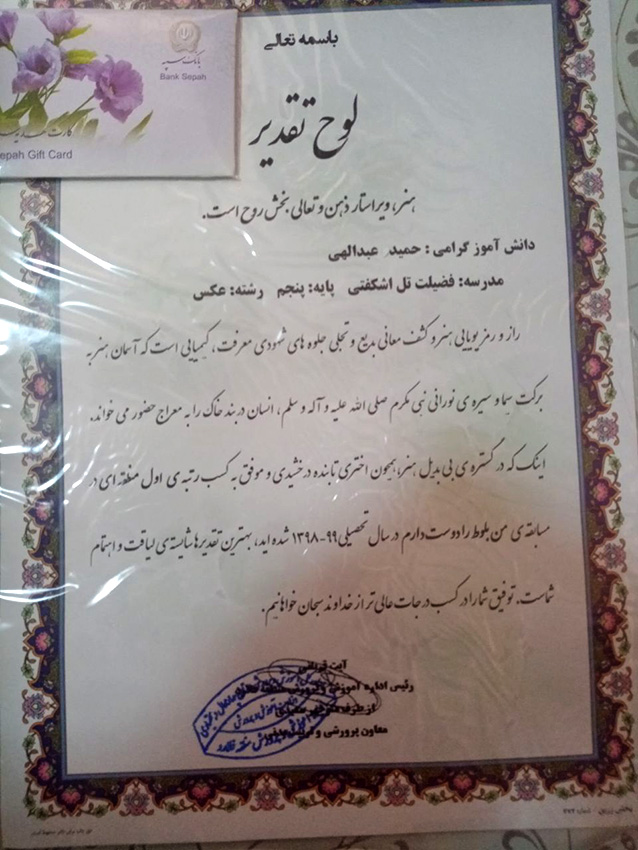 باسمه تعالی
بانک سپه
Bank Sepah
کارت هدیه
epah Gift Card
لوح تقدیر
هنر، ویراستار ذهن و تعالی بخش روح است.
دانش آموز گرامی : حمید عبدالهی
مدرسه: فضیلت تل اشکفتی پایه: پنجم رشته: عکس
راز و رمز پویایی هنر و کشف معانی بدیع و تجلی جلوه های شهودی معرفت، کیمیایی است که آسمان هنر به
برکت سیما و سیره ی نورانی نبی مکرم صلی الله علیه و آله و سلم، انسان در بند خاک را به معراج حضور می خواند.
اینک که در گستره ی بی بدیل هنر، همچون اختری تابنده درخشیدی و موفق به کسب رتبه ی اول منطقه ای در
مسابقه ی من بلوط را دوست دارم در سال تحصیلی ۹۹-۱۳۹۸ شده اید، بهترین تقدیرها شایسته ی لیاقت و اهتمام
شماست. توفیق شما را در کسب درجات عالی تر از خداوند سبحان خواهانیم.
رئیس اداره آموزش و پرورش
از طرف
معاون پرورشی و تربیت بدنی